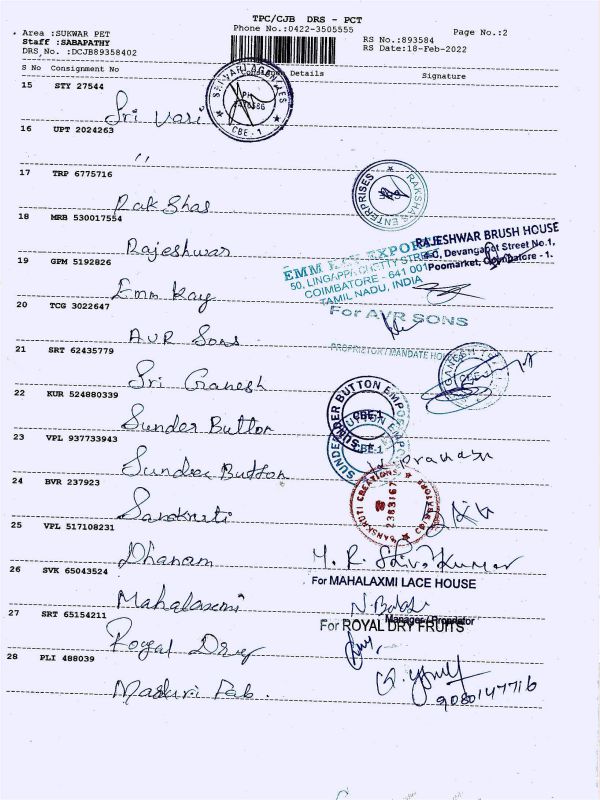 TPC/CJB DRS - PCT
Area :SUKWAR PET Phone No.:0422-3505555 RS No.:893584 Page No.:2
Staff :SABAPATHY RS Date:18-Feb-2022
DRS, No. :DCJB89358402
S No Consignment No Consignee Details Signature
15 STY 27544
Sri Vari
CBE - 1
16 UPT 2024263
"
17 TRP 6775716
Rakshas
RAKSHAS ENTERPRISES
18 MRB 530017554
Rajeshwar
RAJESHWAR BRUSH HOUSE
Devangapet Street No.1,
Poomarket, Coimbatore - 1.
19 GPM 5192826
Emm Kay
EMM KAY EXPORTS
50, LINGAPPA CHETTY STREET
COIMBATORE - 641 001
TAMIL NADU, INDIA
20 TCG 3022647
AVR Sons
For AVR SONS
PROPRIETOR / MANDATE HOLDER
21 SRT 62435779
Sri Ganesh
22 KUR 524880339
Sunder Button
SUNDER BUTTON EMPO
CBE-1
23 VPL 937733943
Sunder Button
SUNDER BUTTON EMPO
CBE-1
24 BVR 237923
Sanskruti
SANSKRUTI CREATIONS
2383167
25 VPL 517108231
Dhanam
M. R. Shivakumar
26 SVK 65043524
Mahalaxmi
For MAHALAXMI LACE HOUSE
N. Balaji
Manager / Proprietor
27 SRT 65154211
Royal Dry
For ROYAL DRY FRUITS
28 PLI 488039
Maduri Fab.
9080147716